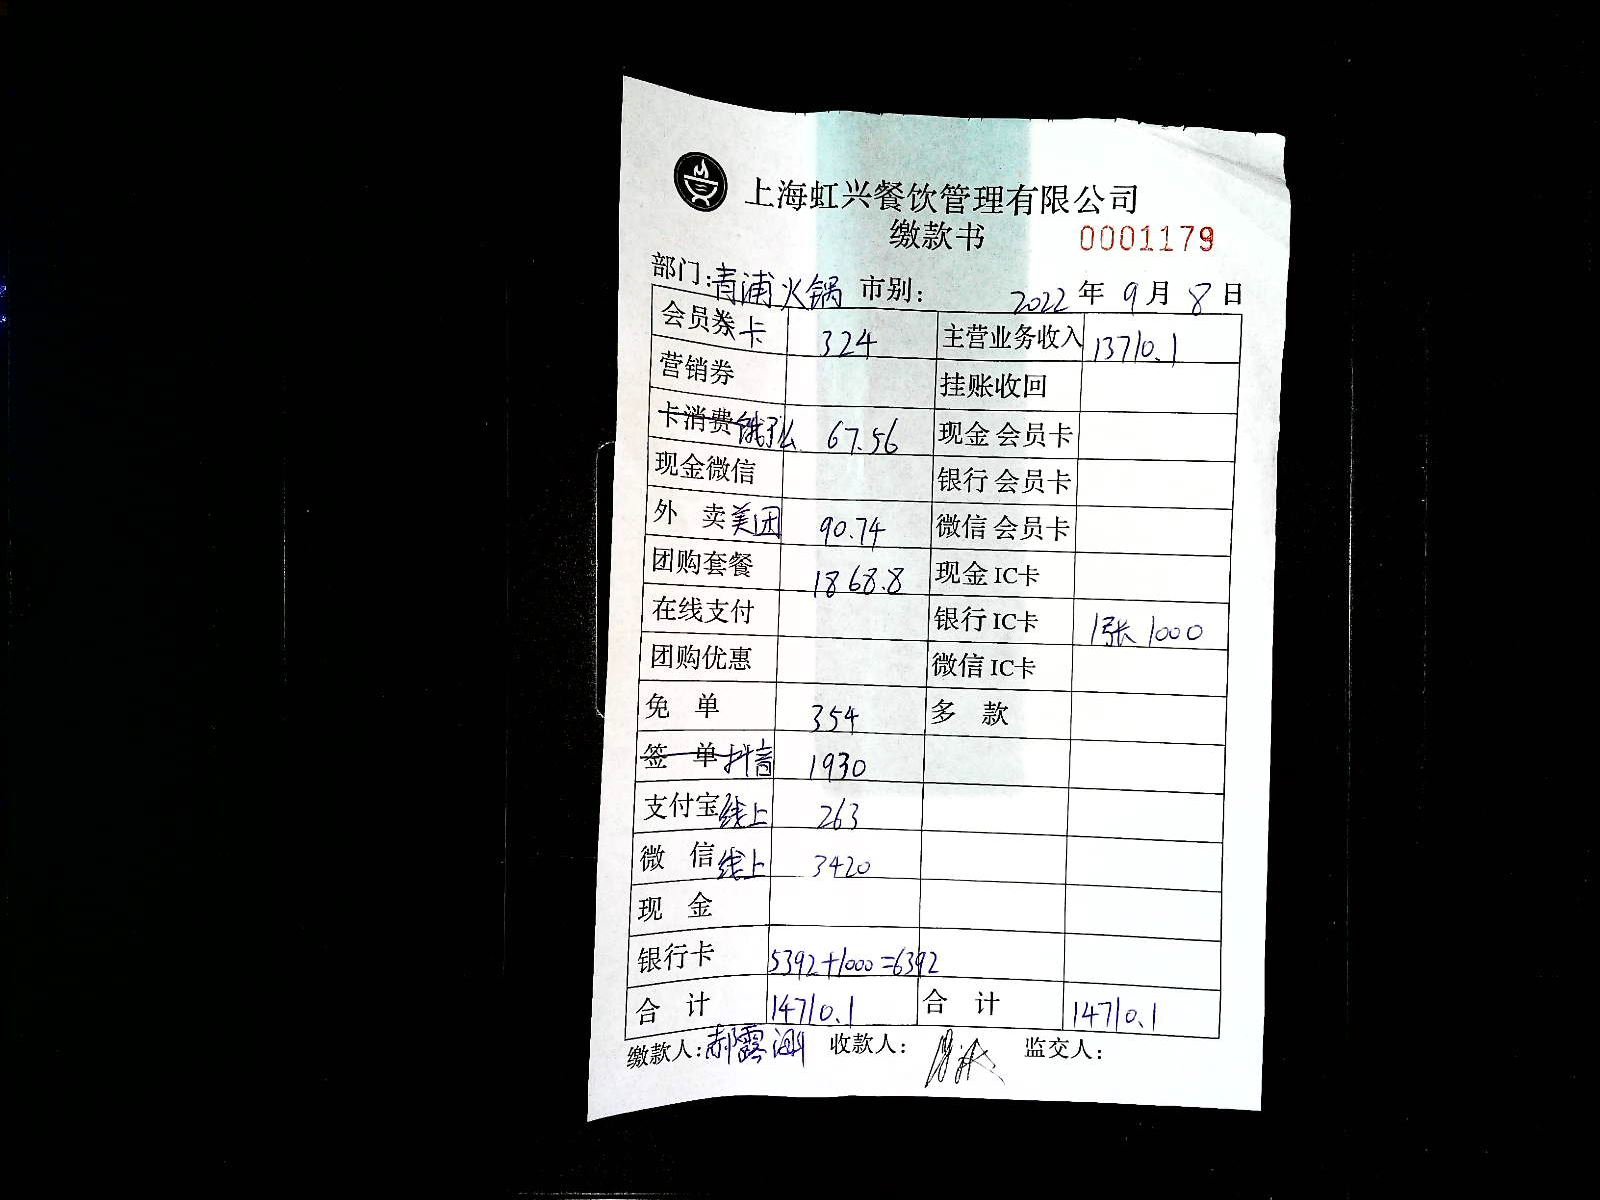 上海虹兴餐饮管理有限公司
缴款书 0001179
部门:青浦火锅 市别: 2022 年 9 月 8 日
会员券卡 324 主营业务收入 13710.1
营销券 挂账收回
卡消费饿了么 67.56 现金会员卡
现金微信 银行会员卡
外 卖美团 90.74 微信会员卡
团购套餐 1868.8 现金IC卡
在线支付 银行IC卡 1张 1000
团购优惠 微信IC卡
免 单 354 多 款
签 单抖音 1930
支付宝线上 263
微 信线上 3420
现 金
银行卡 5392+1000=6392
合 计 14710.1 合 计 14710.1
缴款人:郝露 收款人: 监交人: